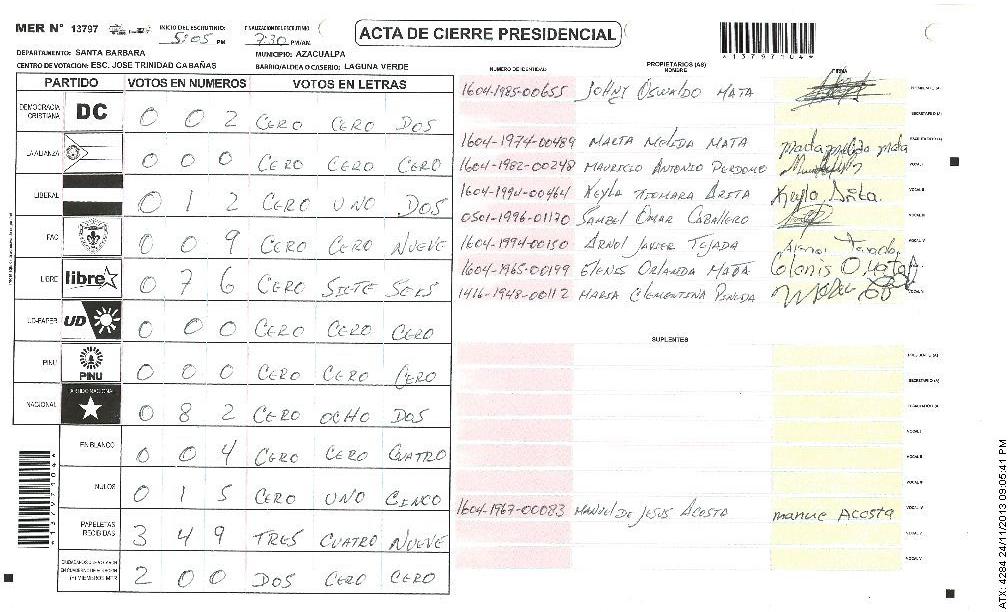 MER N° 13797 INICIO DEL ESCRUTINIO: 5:05 PM FINALIZACION DEL ESCRUTINIO: 7:30 PM/AM.
ACTA DE CIERRE PRESIDENCIAL
*13797104*
DEPARTAMENTO: SANTA BARBARA MUNICIPIO: AZACUALPA
CENTRO DE VOTACION: ESC. JOSE TRINIDAD CABAÑAS BARRIO/ALDEA O CASERIO: LAGUNA VERDE
PARTIDO VOTOS EN NUMEROS VOTOS EN LETRAS
DEMOCRACIA CRISTIANA DC 0 0 2 CERO CERO DOS
LA ALIANZA 0 0 0 CERO CERO CERO
LIBERAL 0 1 2 CERO UNO DOS
FAC 0 0 9 CERO CERO NUEVE
LIBRE libre 0 7 6 CERO SIETE SEIS
UD-FAPER UD 0 0 0 CERO CERO CERO
PINU PINU 0 0 0 CERO CERO CERO
NACIONAL PARTIDO NACIONAL 0 8 2 CERO OCHO DOS
EN BLANCO 0 0 4 CERO CERO CUATRO
NULOS 0 1 5 CERO UNO CINCO
PAPELETAS RECIBIDAS 3 4 9 TRES CUATRO NUEVE
2 0 0 DOS CERO CERO
*13797104*
NUMERO DE IDENTIDAD PROPIETARIOS (AS) NOMBRE FIRMA
1604-1985-00655 JOHNY OSWALDO MATA PRESIDENTE (A)
SECRETARIO (A)
1604-1974-00489 MARTA MELIDA MATA ESCRUTADOR (A)
1604-1982-00248 MAURICIO ANTONIO PERDOMO VOCAL I
1604-1994-00464 KEYLA XIOMARA ARITA Keyla Arita. VOCAL II
0501-1996-01170 SAMUEL OMAR CABALLERO VOCAL III
1604-1994-00150 ARNOL JAVIER TEJADA VOCAL IV
1604-1965-00199 ELENIS ORLANDA MATA
1416-1948-00112 MARIA CLEMENTINA PINEDA
SUPLENTES
PRESIDENTE (A)
SECRETARIO (A)
ESCRUTADOR (A)
VOCAL I
VOCAL II
VOCAL III
1604-1967-00083 MANUEL DE JESUS ACOSTA manue Acosta VOCAL IV
VOCAL V
ATX: 4284 24/11/2013 09:05:41 PM